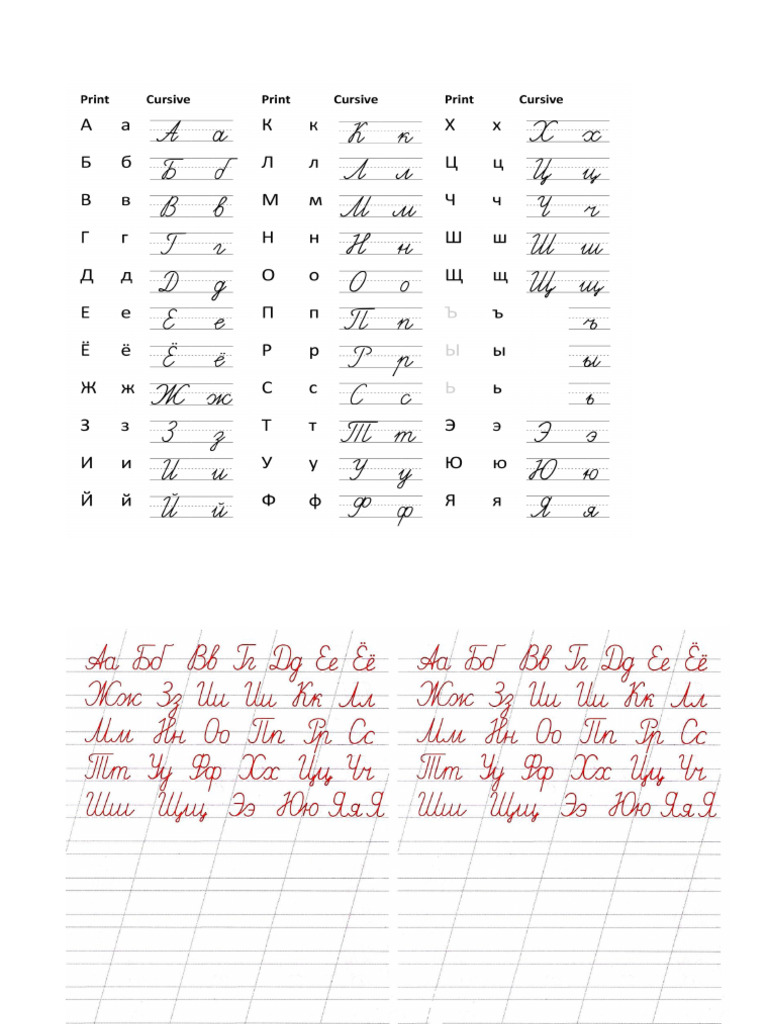 Print Cursive Print Cursive Print Cursive
А а А а К к К к Х х Х х
Б б Б б Л л Л л Ц ц Ц ц
В в В в М м М м Ч ч Ч ч
Г г Г г Н н Н н Ш ш Ш ш
Д д Д д О о О о Щ щ Щ щ
Е е Е е П п П п Ъ ъ ъ
Ё ё Ё ё Р р Р р Ы ы ы
Ж ж Ж ж С с С с Ь ь ь
З з З з Т т Т т Э э Э э
И и И и У у У у Ю ю Ю ю
Й й Й й Ф ф Ф ф Я я Я я
Аа Бб Вв Гг Дд Ее Ёё
Жж Зз Ии Ии Кк Лл
Мм Нн Оо Пп Рр Сс
Тт Уу Фф Хх Цц Чч
Шш Щщ Ээ Юю Яя Я
Аа Бб Вв Гг Дд Ее Ёё
Жж Зз Ии Ии Кк Лл
Мм Нн Оо Пп Рр Сс
Тт Уу Фф Хх Цц Чч
Шш Щщ Ээ Юю Яя Я